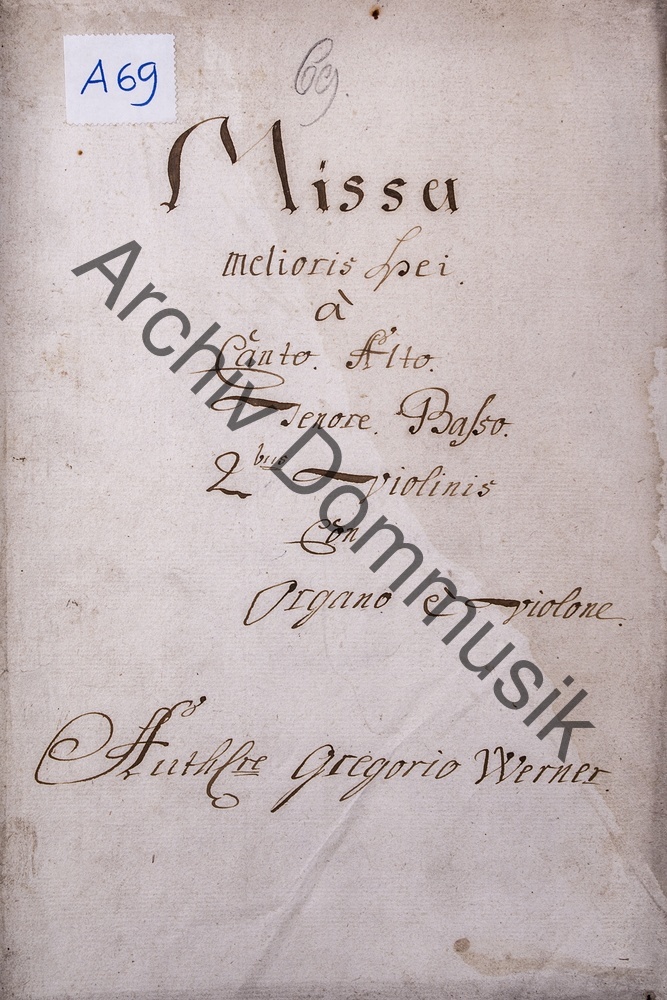 A69
69
Missa
melioris spei.
à
Canto. Alto.
Tenore. Basso.
2bus Violinis
Con
Organo e Violone.
Authore Gregorio Werner.
Archiv Dommusik